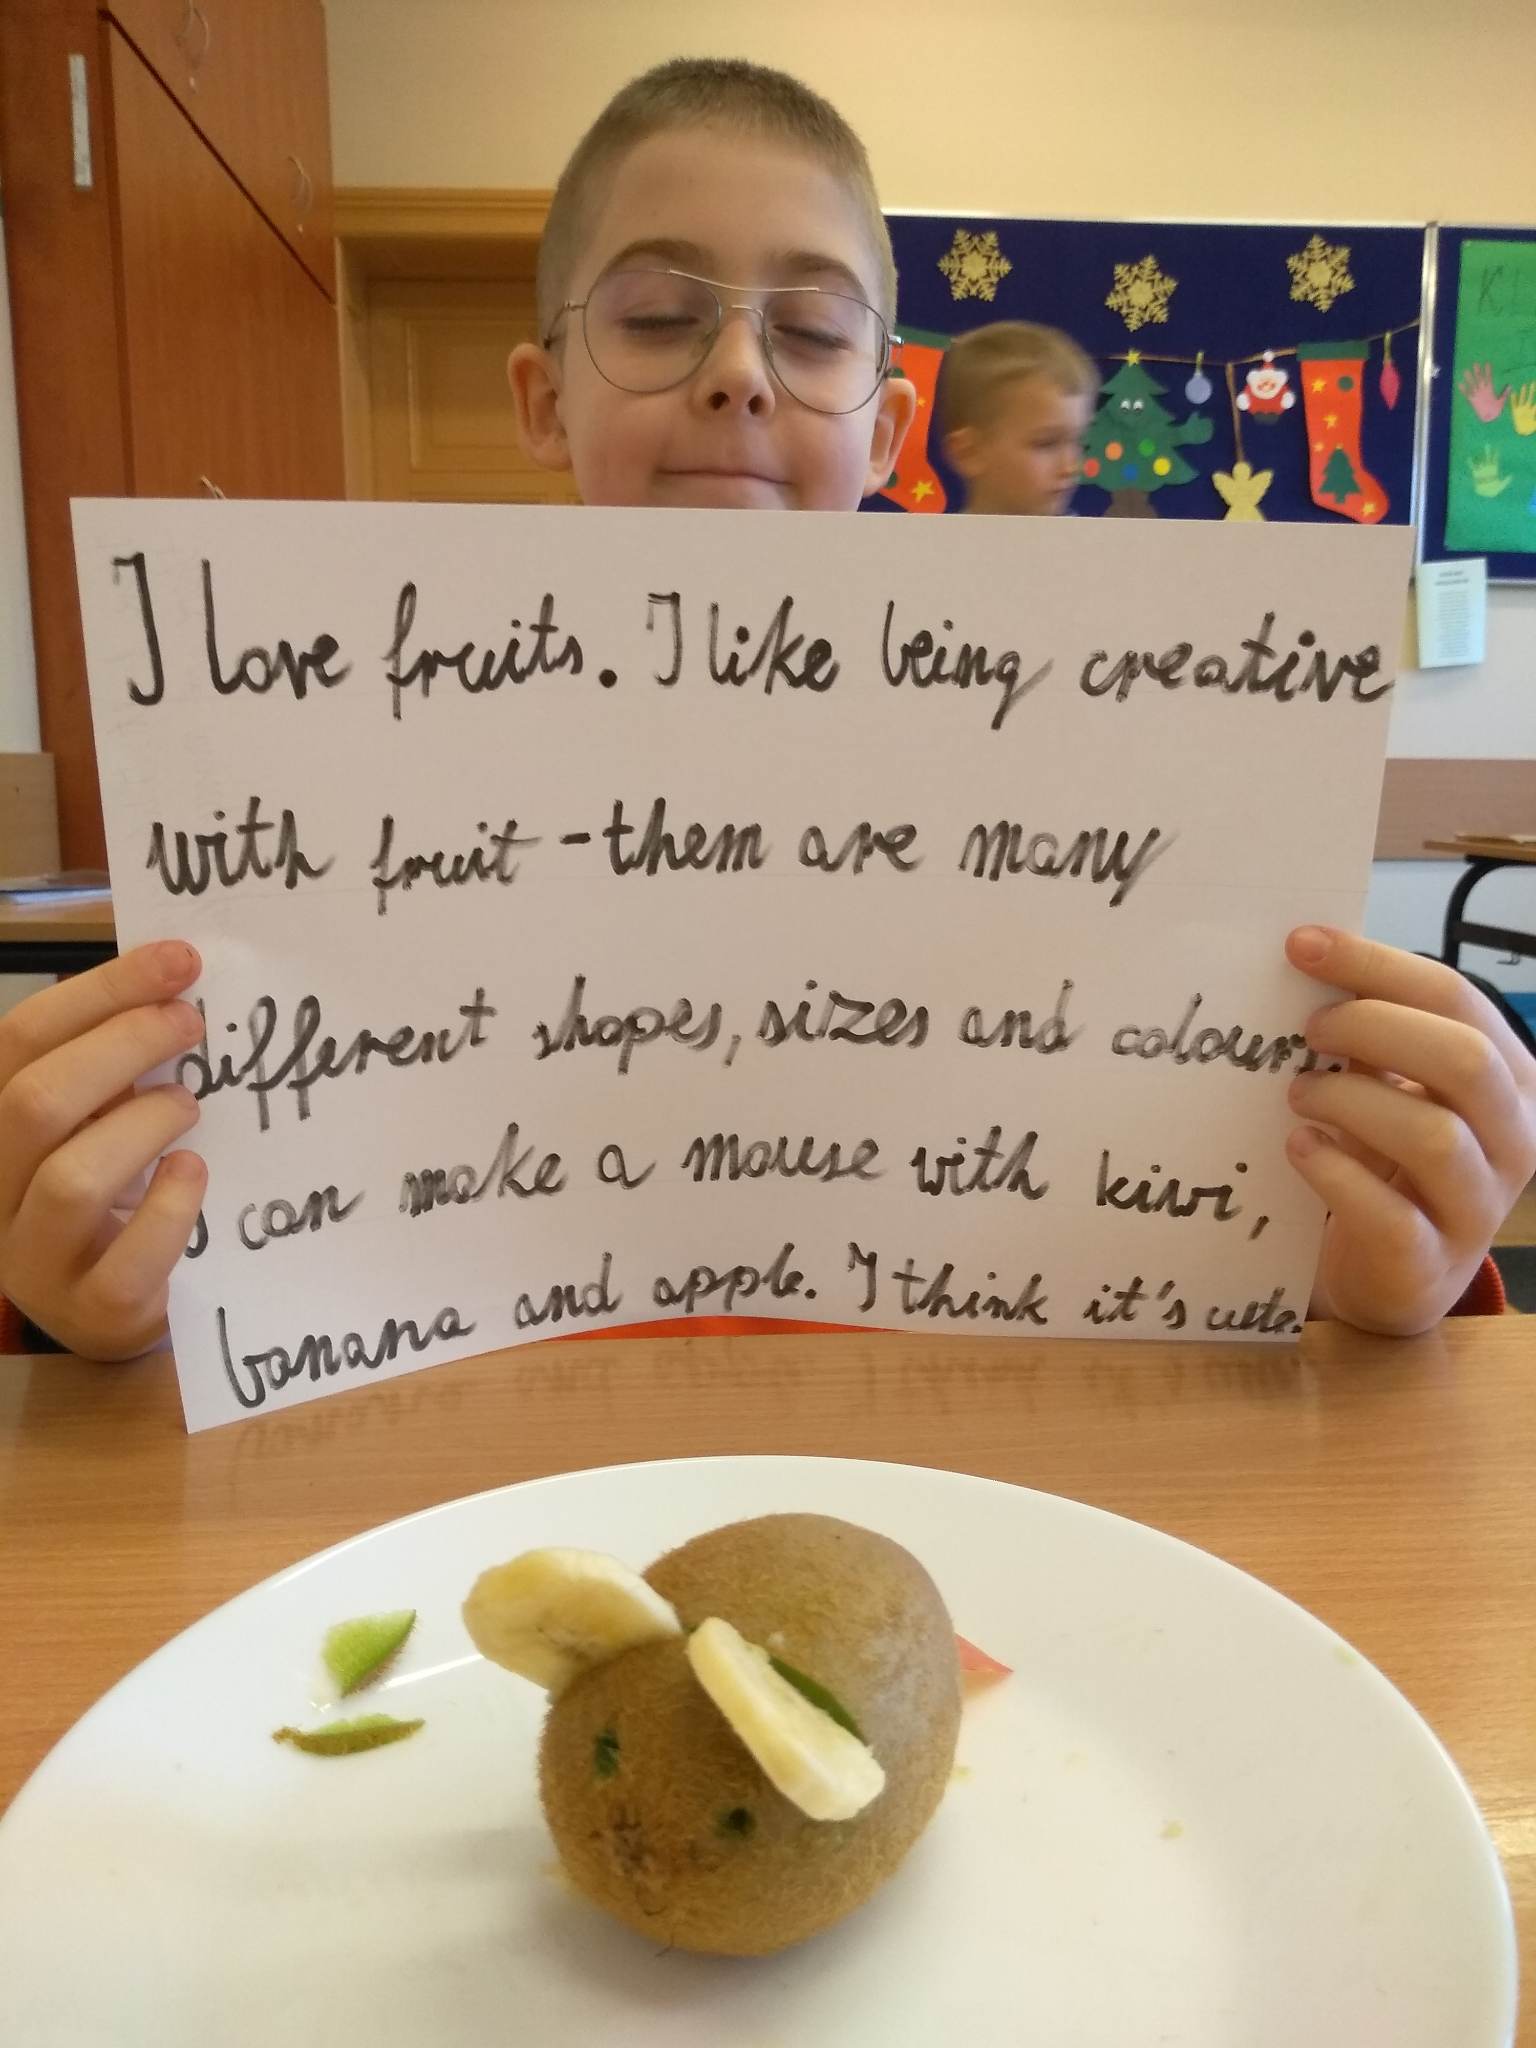 I love fruits. I like being creative
with fruit - them are many
different shapes, sizes and colours.
I can make a mouse with kiwi,
banana and apple. I think it's cute.